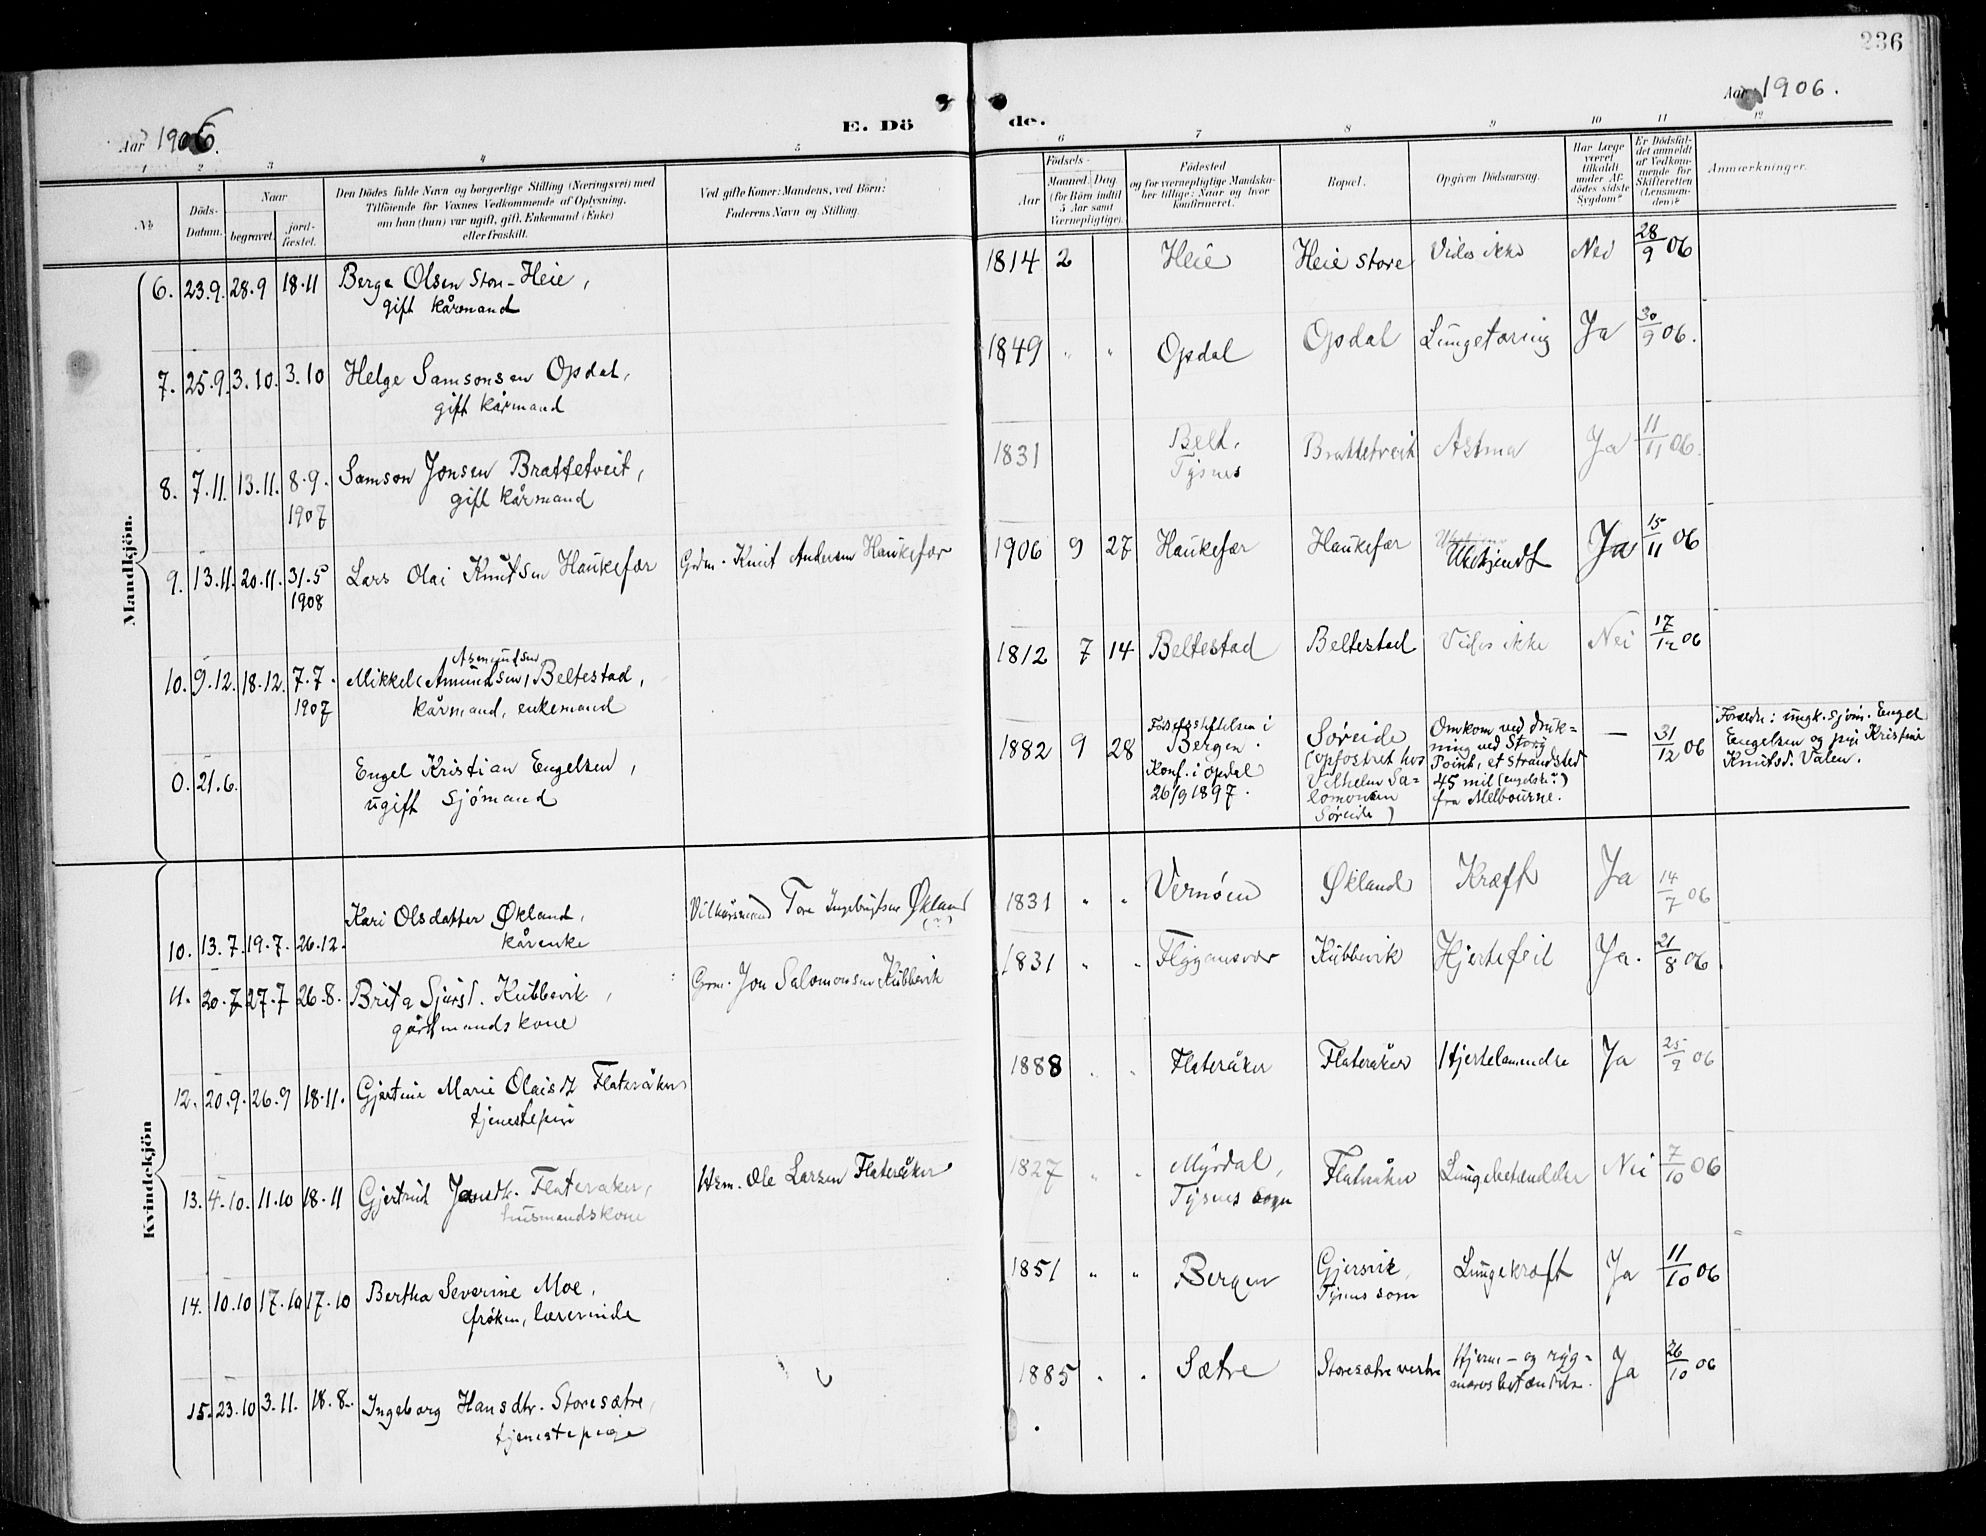 236
Aar 1906.
E. Dö
de.
Aar 1906.
1 2 3 4 5
6 7 8 9 10 11 12
No
Döds-
Datum.
Naar
begravet.
jord-
fæstet.
Den Dödes fulde Navn og borgerlige Stilling (Næringsvei) med
Tilföiende for Voxnes Vedkommende af Oplysning,
om han (hun) var ugift, gift, Enkemand (Enke)
eller fraskilt.
Ved gifte Koner: Mandens, ved Börn:
Faderens Navn og Stilling.
Födsels-
Aar
Maaned. Dag
(for Börn indtil
5 Aar samt
Værnepligtige).
Födested
og for værnepligtige Mandska-
ber tillige: Naar og hvor
konfirmeret.
Bopæl.
Opgiven Dödsaarsag.
Har Læge
været
tilkaldt
under Af-
dödes sidste
Sygdom?
Er Dödsfal-
det anmeldt
af Vedkom-
mende for
Skifteretten
(Lensman-
den)?
Anmærkninger.
Mandkjön.
6. 23.9. 28.9 18.11 Berge Olsen Store-Heie,
gift kårmand
1814 2 Heie Heie store Vides ikke Nei 28/9 06
7. 25.9. 3.10. 3.10 Helge Samsonsen Opdal,
gift kårmand
1849 " " Opdal Opdal Lungetæring Ja 30/9 06.
8. 7.11. 13.11. 8.9.
1907
Samson Jonsen Brattetveit,
gift kårmand
1831 Belt,
Tysnes
Brattetveit Astma Ja 11/11 06.
9. 13.11. 20.11. 31.5
1908
Lars Olai Knutsen Haukefær Grdm. Knut Andersen Haukefær
1906 9 27 Haukefær Haukefær Ubekjendt Ja 15/11 06
10. 9.12. 18.12. 7.7.
1907
Asmundsen
Mikkel (Amundsen) Beltestad,
kårmand, enkemand
1812 7 14 Beltestad Beltestad Vides ikke Nei 17/12 06
0. 21.6. Engel Kristian Engelsen,
ugift sjømand
1882 9 28 Fødselsstiftelsen i
Bergen.
Konf. i Opdal
26/9 1897.
Søreide
(opfostret hos
Vilhelm Sa-
lomonsen
Søreide)
Omkom ved druk-
ning ved Stony
Point, et strandsted
45 mil (engelske)
fra Melbourne.
— 31/12 06
Forældre: ungk. sjøm. Engel
Engelsen og pige Kristine
Knutsd. Valen.
Kvindekjön
10. 13.7. 19.7. 26.12. Kari Olsdatter Økland,
kårenke
Vilkårsmand Tore Ingebrigtsen Økland
(?)
1831 " " Vernøen Økland Kræft Ja 14/7 06
11. 20.7 27.7 26.8. Brita Sjursd. Kubbevik,
gårdmandskone
Grm. Jon Salomonsen Kubbevik
1831 " " Flygansvær Kubbevik Hjertefeil Ja. 21/8 06
12. 20.9. 26.9 18.11. Gjertine Marie Olaisd. Flateråker
tjenestepige
1888 " " Flateråker Flateråker Hjertelammelse Ja 25/9 06
13. 4.10. 11.10 18.11 Gjertrud Jansdtr. Flateråker,
husmandskone
Hsm. Ole Larsen Flateråker
1827 " " Myrdal,
Tysnes sogn
Flateråker Lungebetændelse Nei 7/10 06
14. 10.10 17.10 17.10 Bertha Severine Moe,
frøken, lærerinde
1851 " " Bergen Gjersvik,
Tysnes sogn
Lungekræft Ja 11/10 06
15. 23.10 3.11. 18.8. Ingeborg Hansdtr. Storesætre,
tjenestepige
1885 " " Sætre Storesætre vestre Hjerne- og ryg-
marvsbetændelse. Ja 26/10 06